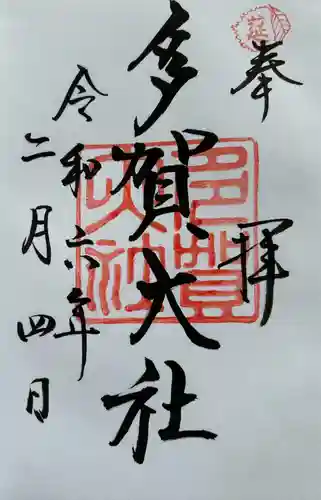 奉拝
多賀大社
令和六年
二月四日
多賀大社
延